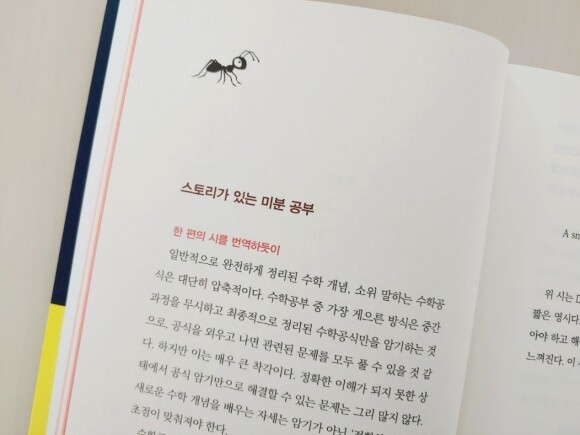 스토리가 있는 미분 공부
한 편의 시를 번역하듯이
일반적으로 완전하게 정리된 수학 개념, 소위 말하는 수학공
식은 대단히 압축적이다. 수학공부 중 가장 게으른 방식은 중간
과정을 무시하고 최종적으로 정리된 수학공식만을 암기하는 것
으로, 공식을 외우고 나면 관련된 문제를 모두 풀 수 있을 것 같
다. 하지만 이는 매우 큰 착각이다. 정확한 이해가 되지 못한 상
태에서 공식 암기만으로 해결할 수 있는 문제는 그리 많지 않다.
새로운 수학 개념을 배우는 자세는 암기가 아닌
초점이 맞춰져야 한다.
A sm
위 시는 D
짧은 영시다
아야 하고 해
느껴진다. 이